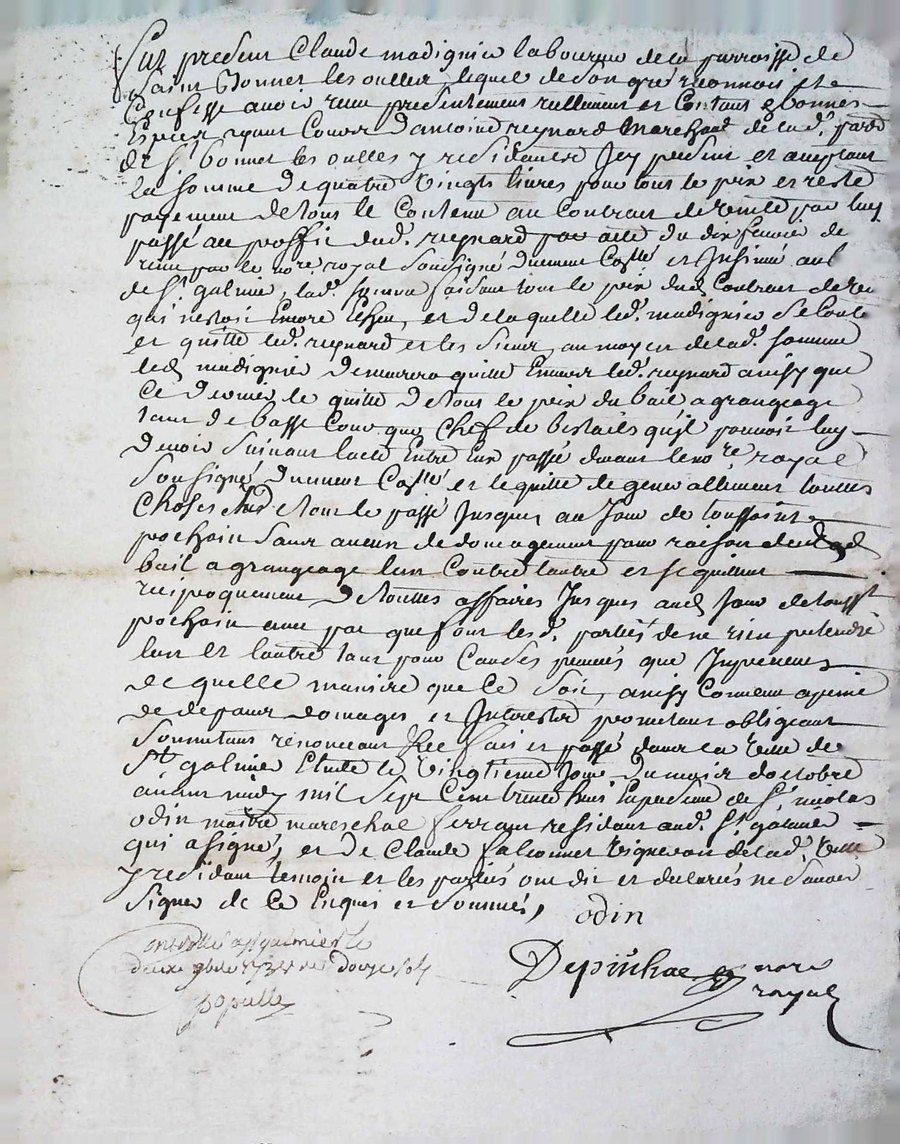 Fut present Claude madignier laboureur de la parroisse de
Saint Bonnet les oulles, lequel de son gré reconnoit et
Confesse avoir receu presentement reellement et Contant en bonnes
Especes ayant Cours d'antoine reynard Marchand de lad. parr
de St. bonnet les oulles y residant Icy present et aceptant
la somme de quatre vingts livres pour tout le prix et reste
payement de tout le Contenu au Contrat de vente par luy
passé au proffit dud. reynard par acte du dix fevrier de
receu par le nore. royal soussigné duement Collé et Insinué au
de St. galmier, lad. somme faisant tout le prix dud Contrat de ve
qui restoit Encore, et de laquelle led. madignier se Contente
et quitte led. reynard et les siens, au moyen de lad. somme
led madignier demeurera quitte Envers led. reynard ainsy que
Ce dernier le quitte de tout le prix du bail a grangeage
tant de basse Cour que Chef de bestails qu'il pouvoit luy
devoir suivant lacte Entre Eux passé devant le nore royal
soussigné duement Collé et le quitte de generallement touttes
Choses de tout le passé Jusques au Jour de toussaints
prochain sans aucun dedomagement pour raison dud
bail a grangeage lun Contre lautre et se quittent
reciproquement de touttes affaires Jusques aud Jour de touss
prochain avec pac que font lesd. parties de ne rien pretendre
lun et lautre tant pour Causes preveues que Inpreveues
de quelle maniere que Ce soit, ainsy Convenu a peine
de depans domages et Interestz promettant obligeant
soumettant renonceant &c fait et passé dans la ville de
St galmier Etude le vingtieme Jour du mois d'octobre
avant midy mil sept Cent trente huit En presence de Sr. nicolas
odin maitre mareschal ferrant residant aud. St galmier
qui a signé, et de Claude falconnet vigneron de lad. ville
y residant temoin et les parties ont dit et declarés ne savoir
signer de Ce Enquis et sommés,
odin
Controllé a St galmier le
deux 9bre 1738 receu douze sols
populle
Depinhac nore
royal